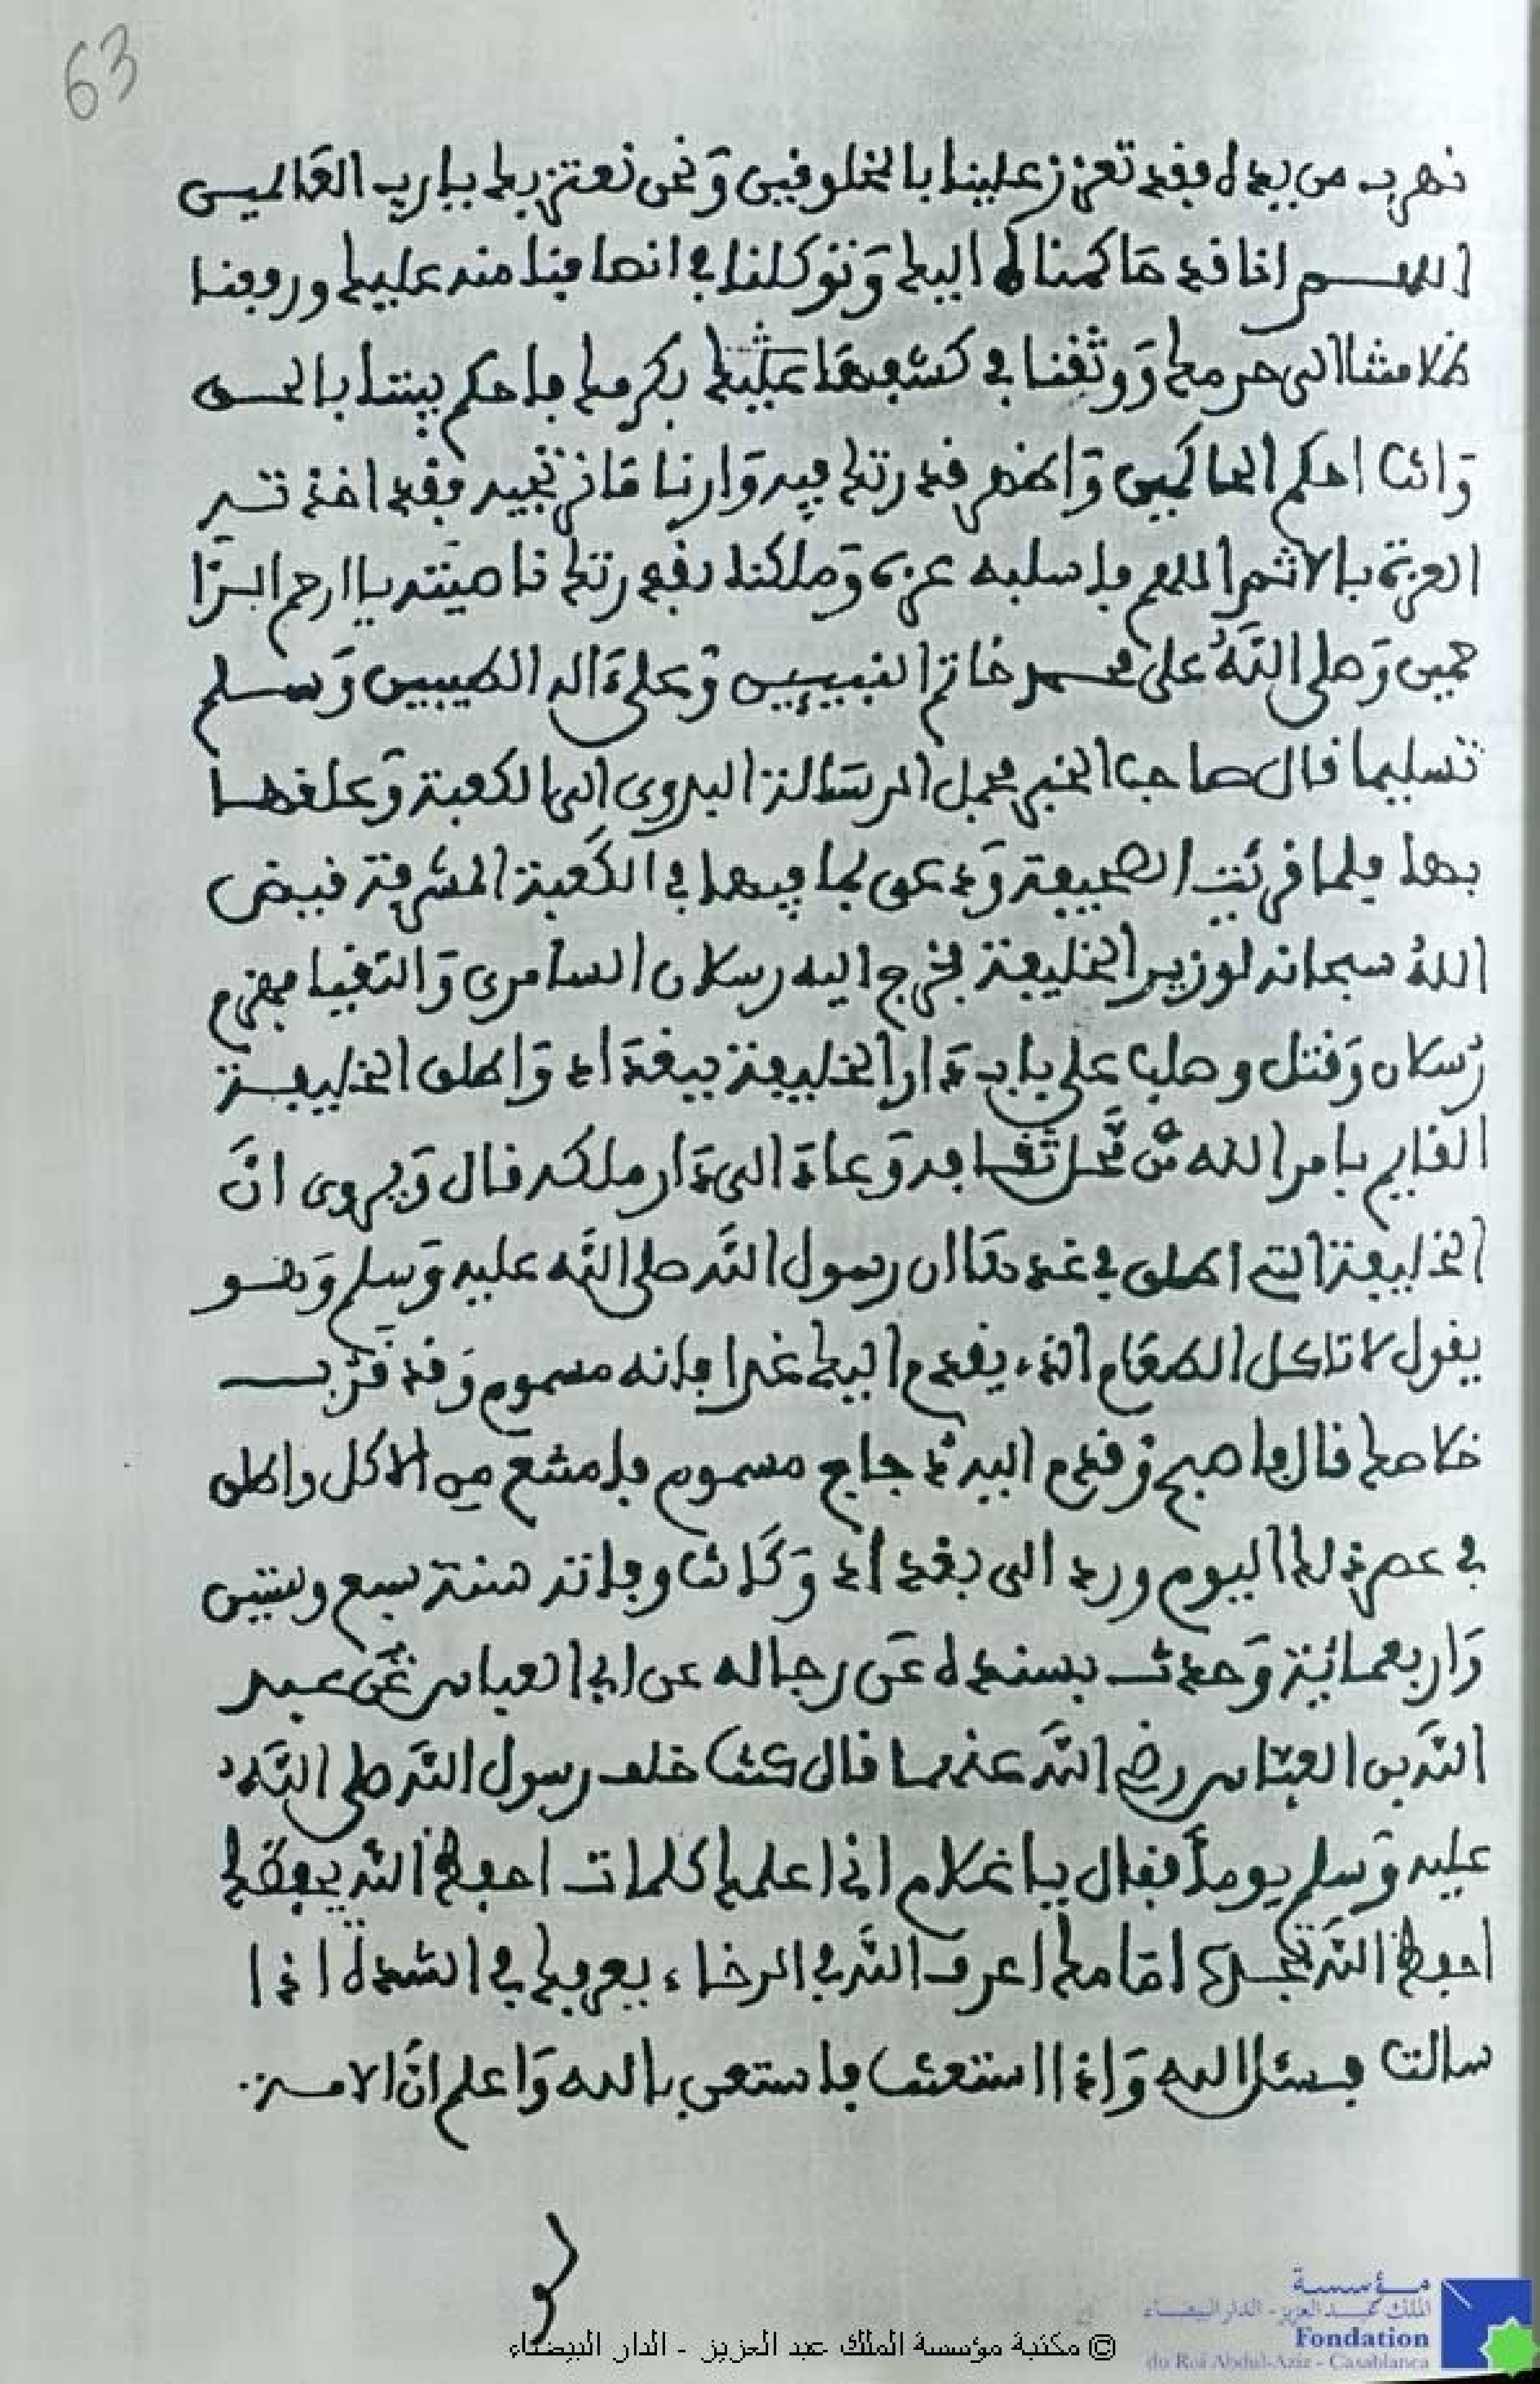 63
نهرب من يده فقد تعزز علينا بالمخلوقين وَنحن نعتز بك يا رب العَالمين
اللهم انا قد حَاكمناه اليك وَتوكلنا في انصافنا منه عليك ورفعنا
ظلامتنا الى حرمك وَوثقنا في كشفهَا بكرمك فاحكم بيننا بالحق
وَانت احكم الحاكمين وَاظهر قدرتك فيه وَارنا مَا نرتجيه فقد اخذته
العزة بالاثم اللهم فاسلبه عزه وَملكنا بقدرتك ناصيته يا ارحم الرَّا
حمين وَصلى اللَّهُ على محمد خاتم النبيين وَعلى ءَاله الطيبين وَسلم
تسليما قال صاحب الخبر فحمل الرسَالة البدوى الى الكعبة وَعلقها
بها فلما قرئت الصحيفة وَدعى بما فيها في الكَعبة المشرفة فيض
اللهُ سبحانه لوزير الخليفة فخرج اليه رسلان الساَمرى وَالتقيا فهزم
رَسلان وَقتل وصلب على باب دَار الخليفة ببغدَاد وَاطلق الخليفة
القايم بامر الله من محل ثقافه وَعادَ الى دَار ملكه قال وَيروى انَّ
الخليفة التي اطلق في غدها ان رسول اللَّه صلى اللَّه عليه وَسلم وَهو
يقول لا تاكل الطعَام الذى يقدم اليك غدا فانه مسموم وَقد قَرُب
خلاصك قال فاصبح وَقدم اليه دجاج مسموم فامتنع من الاكل واطلق
في عصر ذلك اليوم ورد الى بغدَاد وَكَانت وفاته سنة سبع وستين
وَاربعمائة وَحدث بسنده عَن رجاله عن ابي العباس عَن عبد
اللَّه بن العبَّاس رضي اللَّه عنهما قال كنت خلف رسول اللَّه صلى اللَّه
عليه وَسلم يوماً فقال يا غلام اني اعلمك كلمات احفظ اللَّه يحفظك
احفظ اللَّه تجده امَامك اعرف اللَّه في الرخاء يعرفك في الشدة اذا
سالت فسئل الله وَاذا استعنت فاستعن بالله وَاعلم انَّ الامة
© مكتبة مؤسسة الملك عبد العزيز - الدار البيضاء
مؤسسة
الملك عبد العزيز - الدار البيضاء
Fondation
du Roi Abdul-Aziz - Casablanca